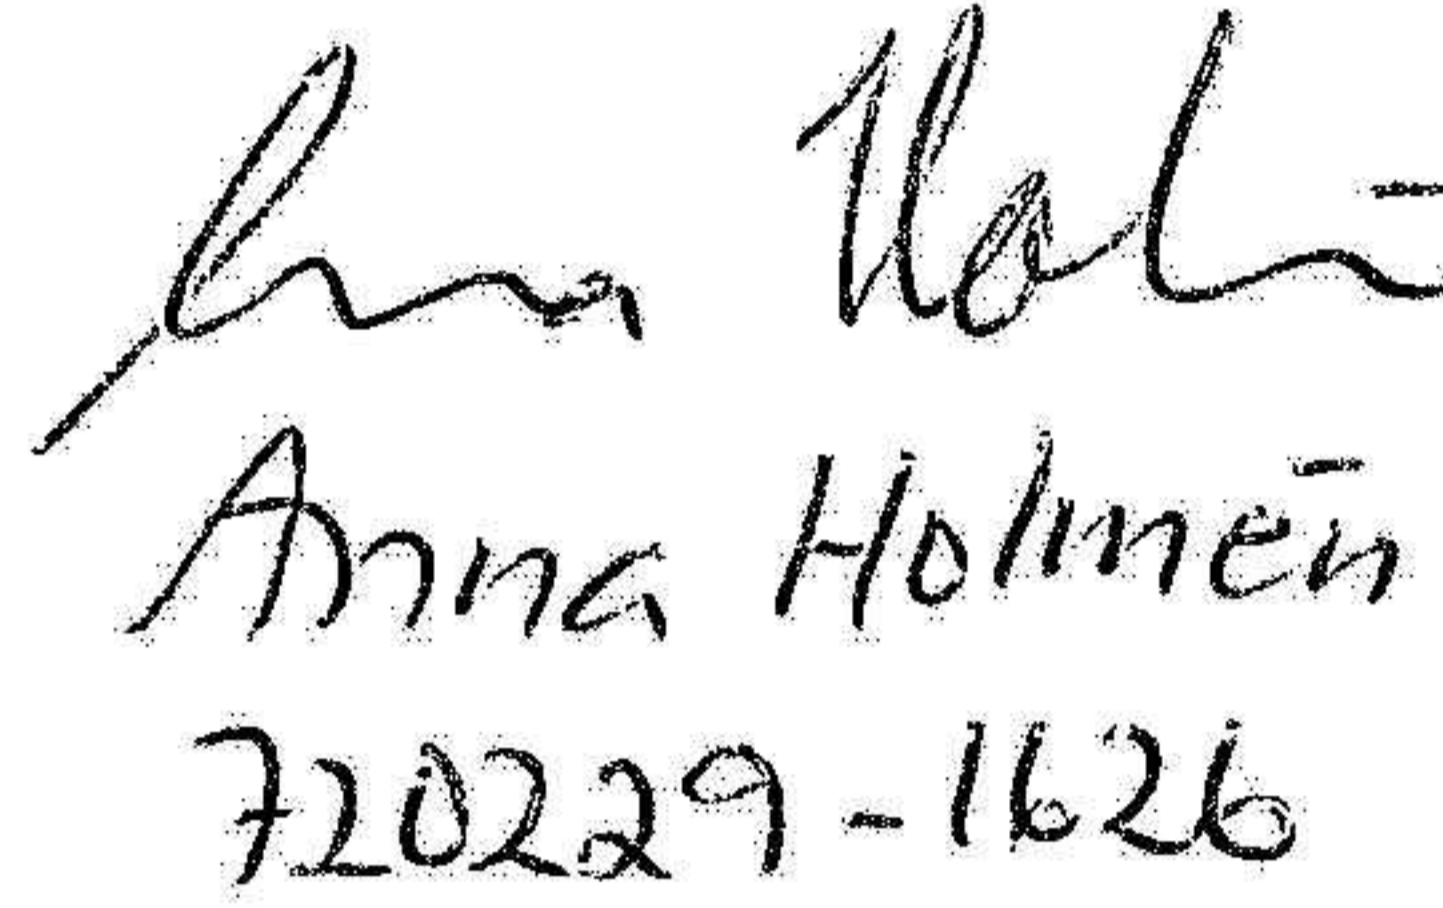 Anna Holm
Anna Holmén
720229-1626